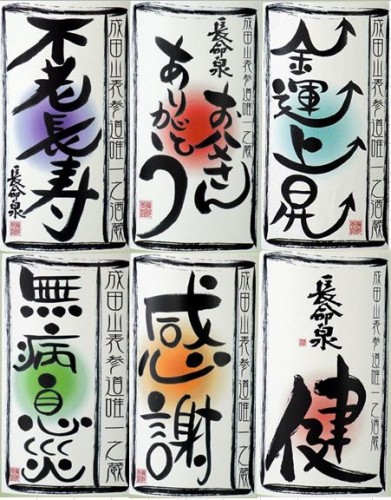 成田山表参道唯一之酒蔵
不老長寿
長命泉
成田山表参道唯一之酒蔵
長命泉
お父さん
ありがとう
成田山表参道唯一之酒蔵
金運上昇
成田山表参道唯一之蔵
無病息災
成田山表参道唯一之蔵
感謝
長命泉
健